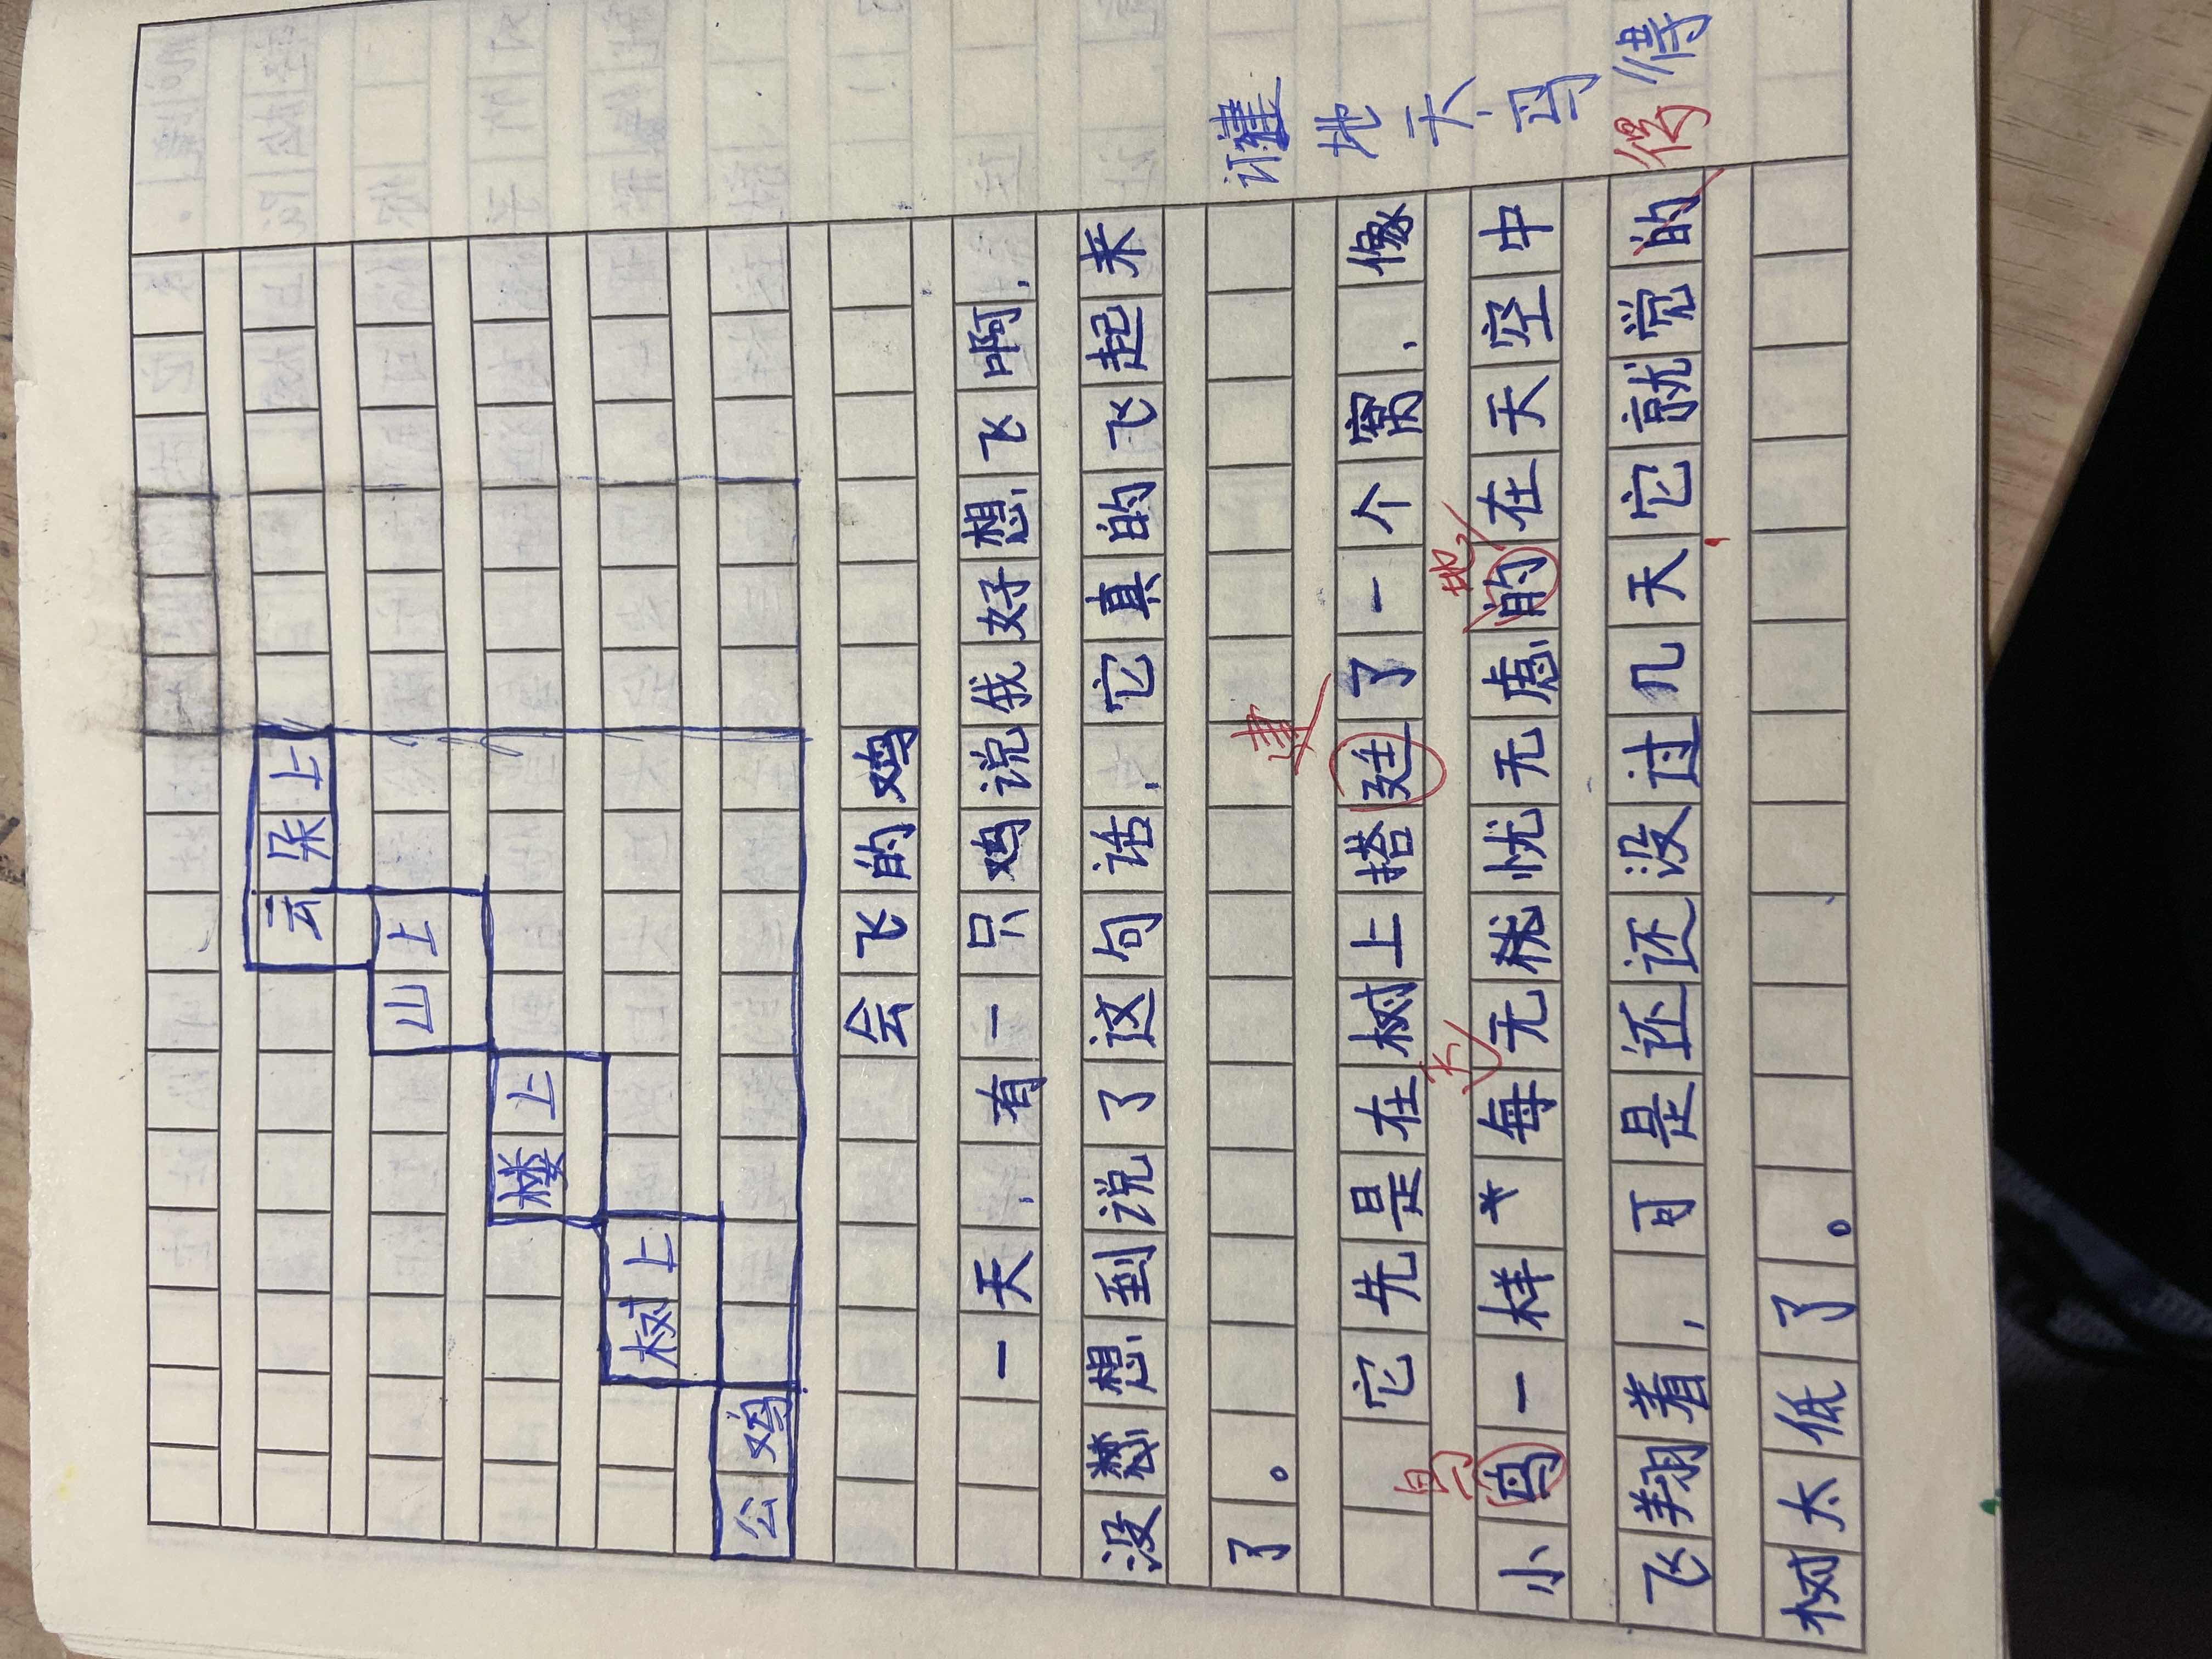 云朵上
山上
楼上
树上
公鸡
会飞的鸡
一天,有一只鸡说俄好想飞啊,
没想想到说了这句话,它真的飞起来
了。
建
订建
它先是在树上搭廷了一个窝,像
地
天
地
天
鸟
鸟
小鸟一样*每无忧无忧无虑的在天空中
飞翔着,可是还还没过几天它就觉的
得
树太低了。